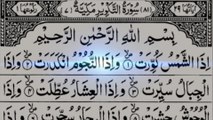 آياتها ٢٩ (٨١) سُورَةُ التَّكْوِيرِ مَكِّيَّةٌ (٧)
بِسْمِ اللَّهِ الرَّحْمَٰنِ الرَّحِيمِ
إِذَا الشَّمْسُ كُوِّرَتْ ۝١ وَإِذَا النُّجُومُ انْكَدَرَتْ ۝٢ وَإِذَا
الْجِبَالُ سُيِّرَتْ ۝٣ وَإِذَا الْعِشَارُ عُطِّلَتْ ۝٤ وَإِذَا